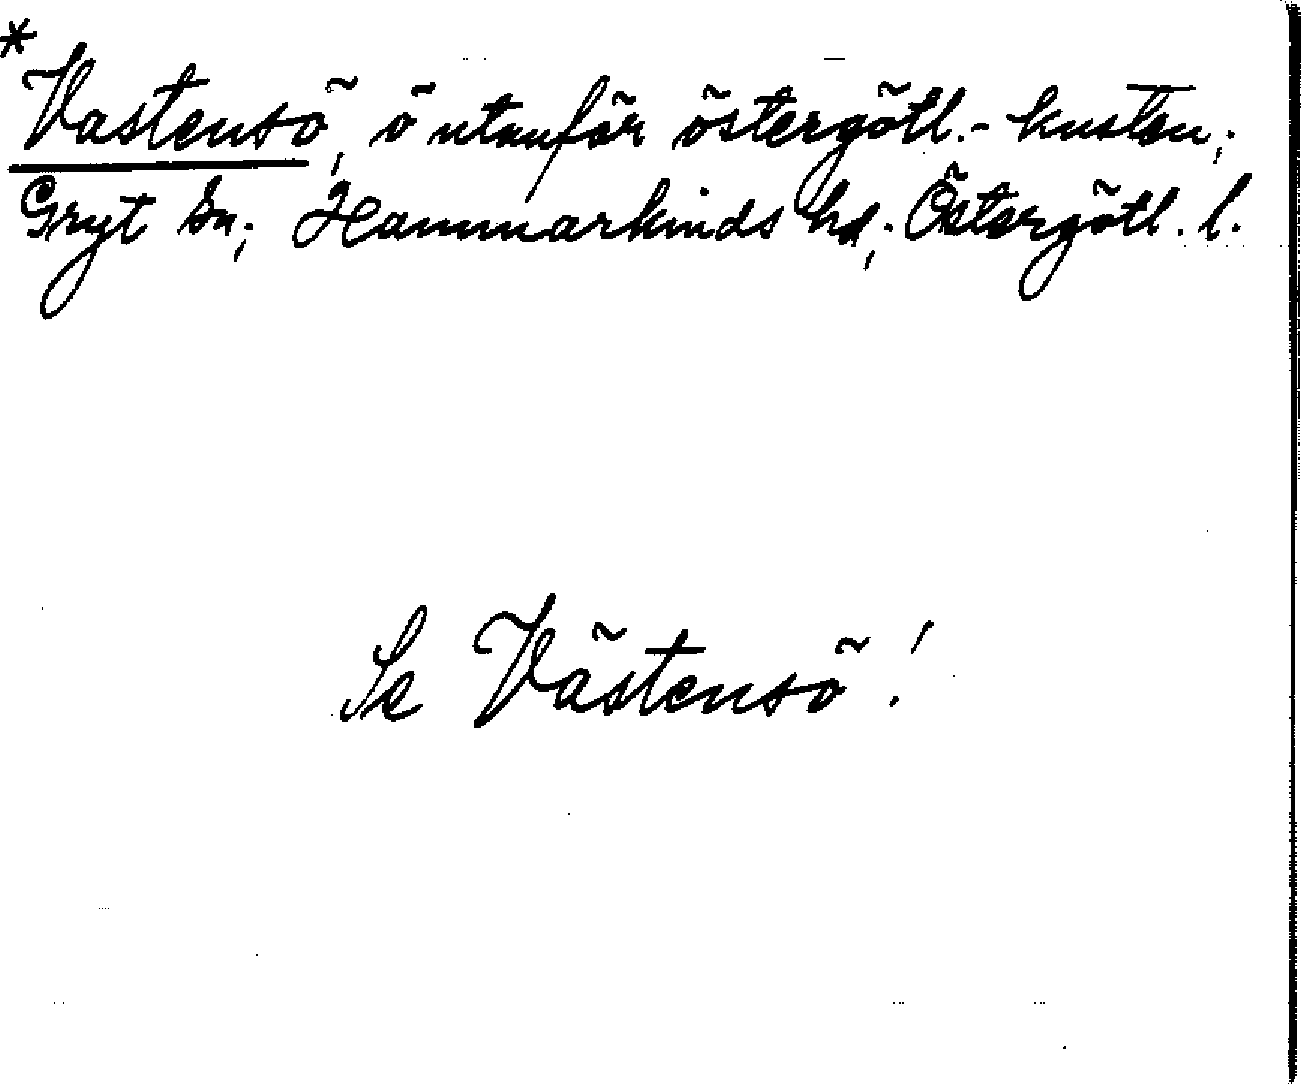 * Vastensö, ö utanför östergötl.-kusten;
Gryt sn; Hammarkinds hd; Östergötl. l.
Se Västensö!